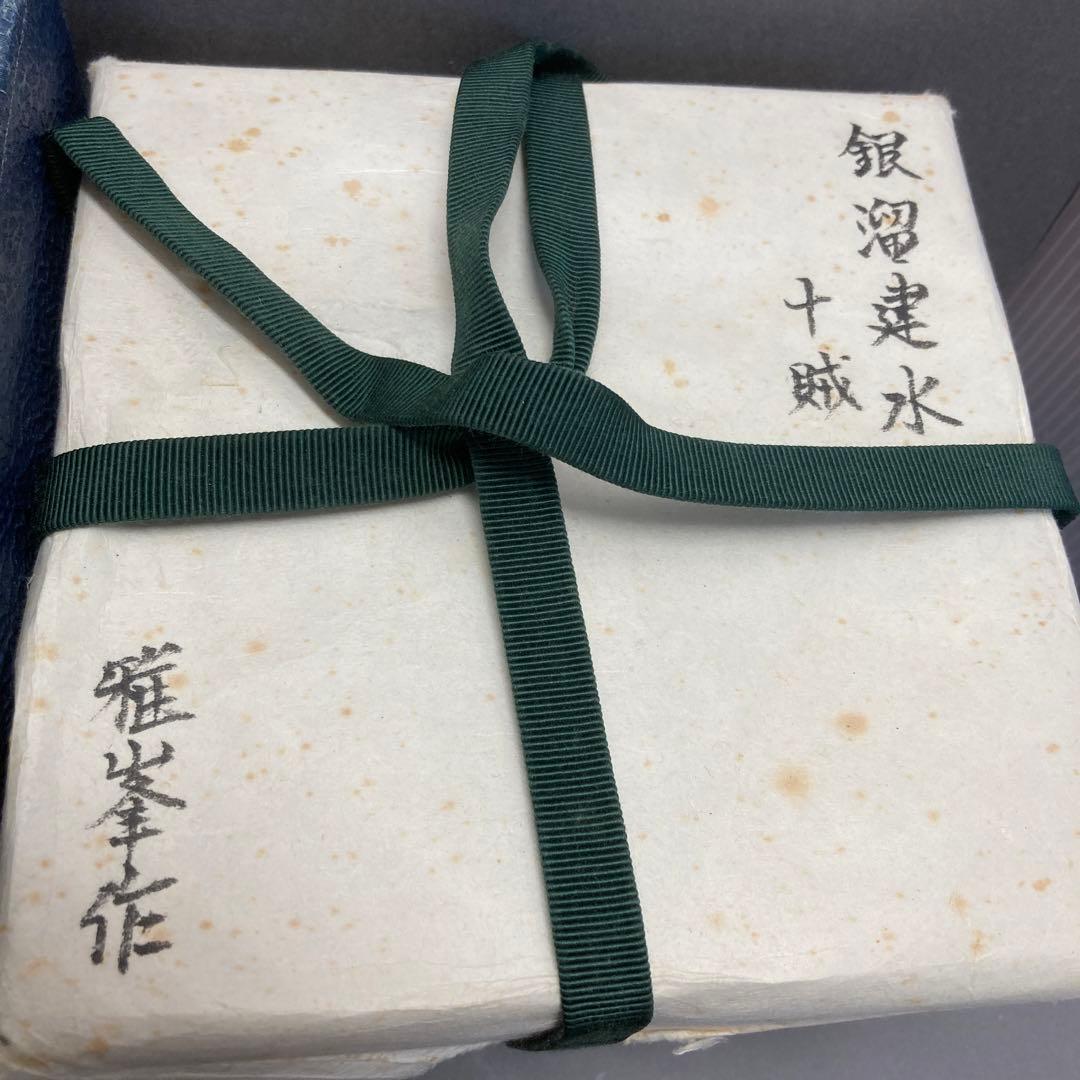 銀溜建水
十賊
雅峯作